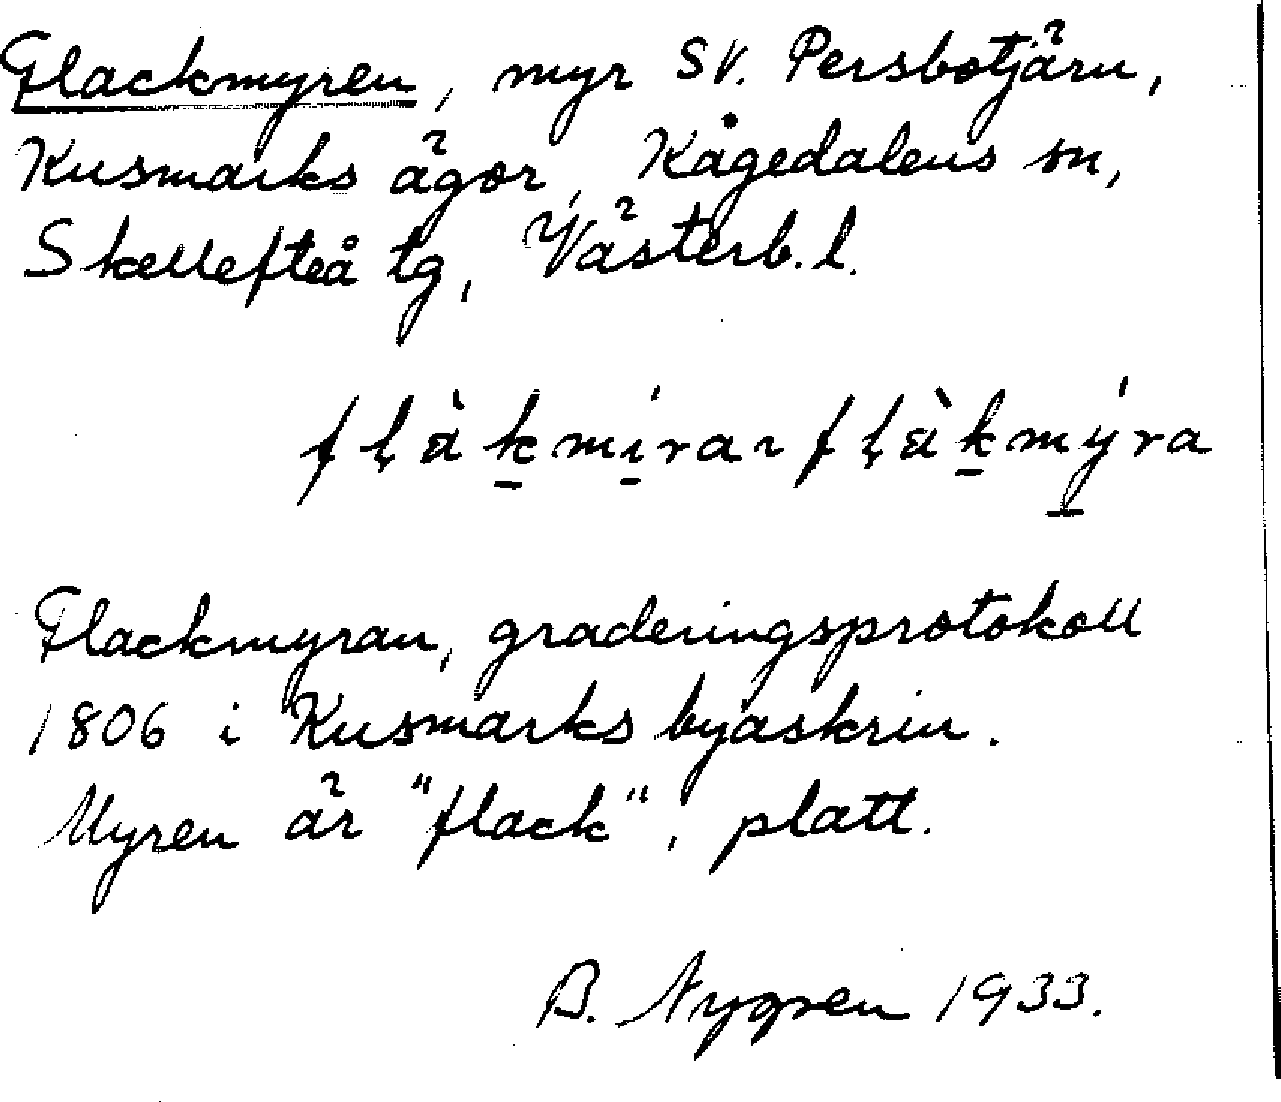 Flackmyren, myr SV. Persbotjärn,
Kusmarks ägor, Kågedalens sn,
Skellefteå tg, Västerb. l.
fḷàk̲mí̲ra ~ fḷàk̲mý̲ra
Flackmyran, graderingsprotokoll
1806 i Kusmarks byaskrin.
Myren är "flack", platt.
B. Nygren 1933.